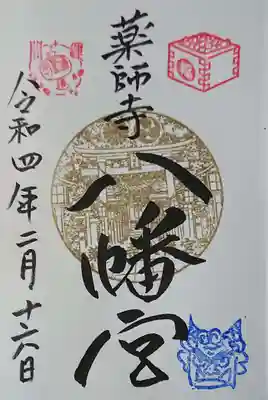 薬師寺
八幡宮
令和四年二月十六日